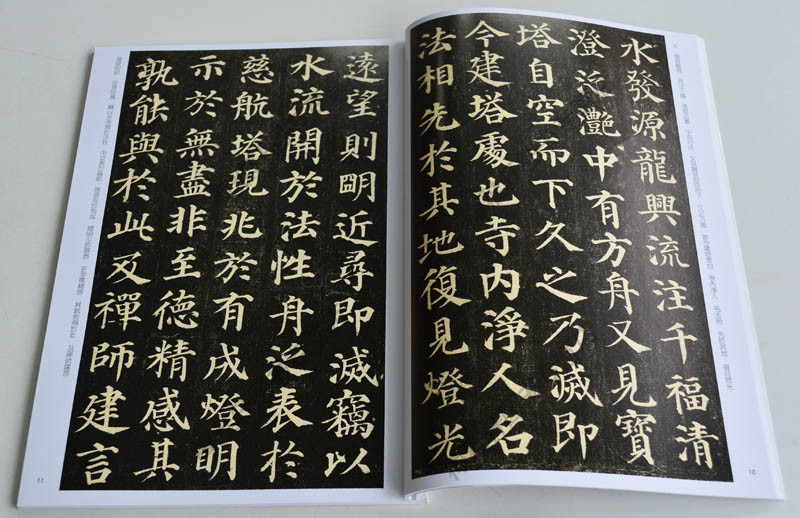 水發源龍興流注千福清
澄泛灧中有方舟又見寶
塔自空而下久之乃滅即
今建塔處也寺內淨人名
法相先於其地復見燈光
10
遠望則明近尋即滅竊以
水流開於法性舟泛表於
慈航塔現兆於有成燈明
示於無盡非至德精感其
孰能與於此及禪師建言
11